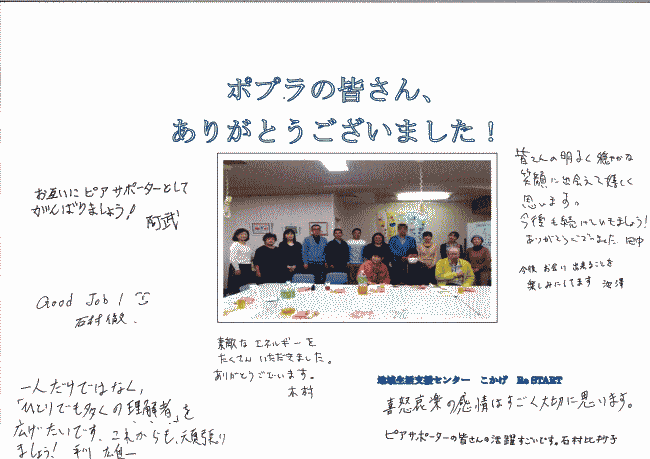 ポプラの皆さん、
ありがとうございました！
お互いに ピア サポーターとして
がんばりましょう！ 阿武
皆さんの明るく穏やかな
笑顔に出会えて嬉しく
思います。
今後も続けていきましょう！
ありがとうございました 田中
今後 お会い 出来ることを
楽しみにしてます
Good Job！
石村
素敵な エネルギーを
たくさん いただきました。
ありがとうございます。
木村
一人だけではなく、
「ひとりでも多くの理解者」を
広げたいです、これからも、頑張り
ましょう！
地域生活支援センター こかげ Re START
喜怒哀楽の感情はすごく大切に思います。
ピアサポーターの皆さんの活躍すごいです。石村